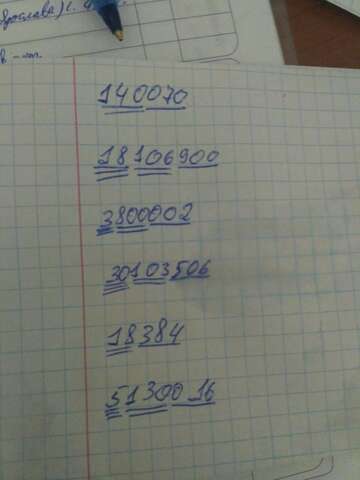 140070
18106900
3800002
30103506
18384
5130016